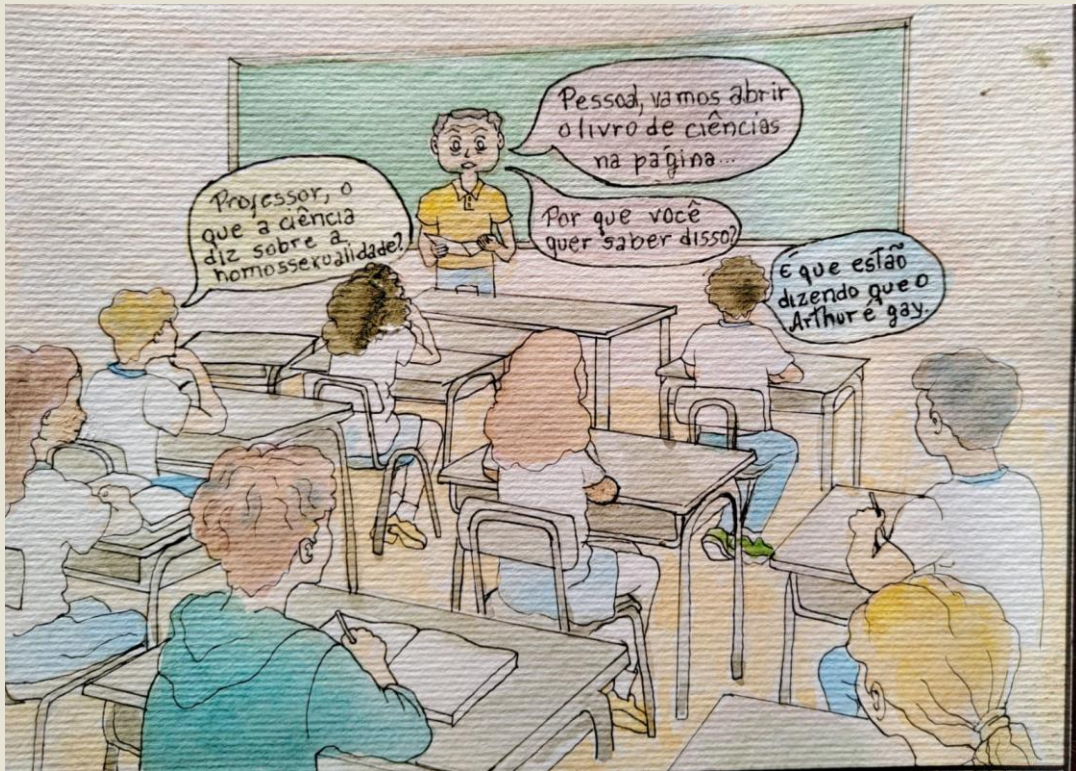 Pessoal, vamos abrir
o livro de ciências
na página...
Professor, o
que a ciência
diz sobre a
homossexualidade?
Por que você
quer saber disso?
É que estão
dizendo que o
Arthur é gay.